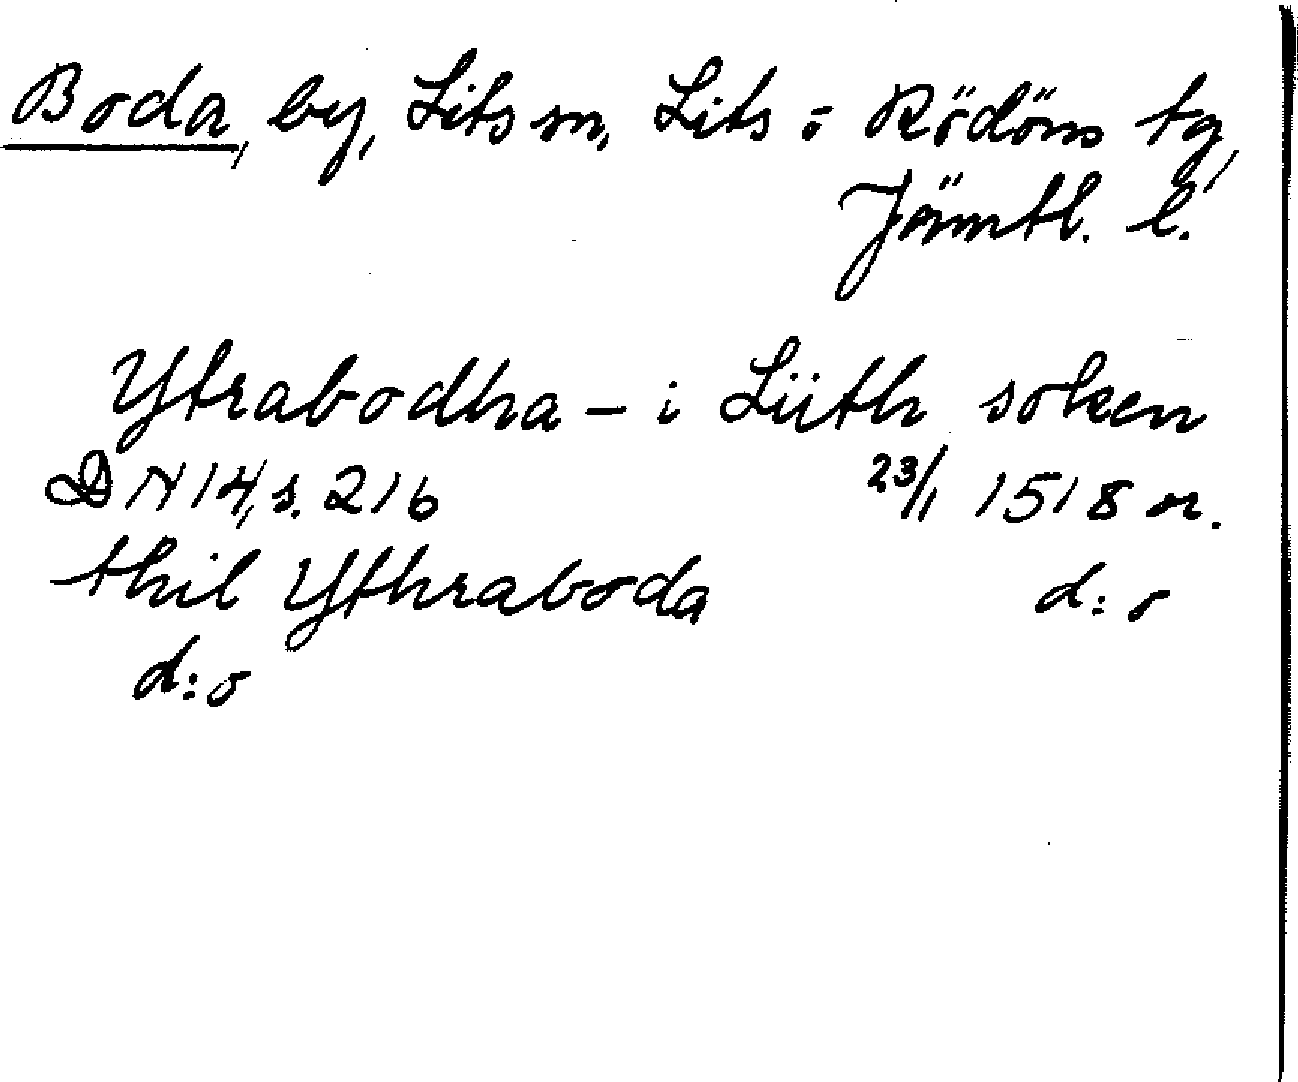 Boda, by, Lits sn, Lits o Rödöns tg,
Jämtl. l.
Ytrabodha – i Lüth soken
DN 14, s. 216 23/11 1518 or.
thil Ythraboda d:o
d:o